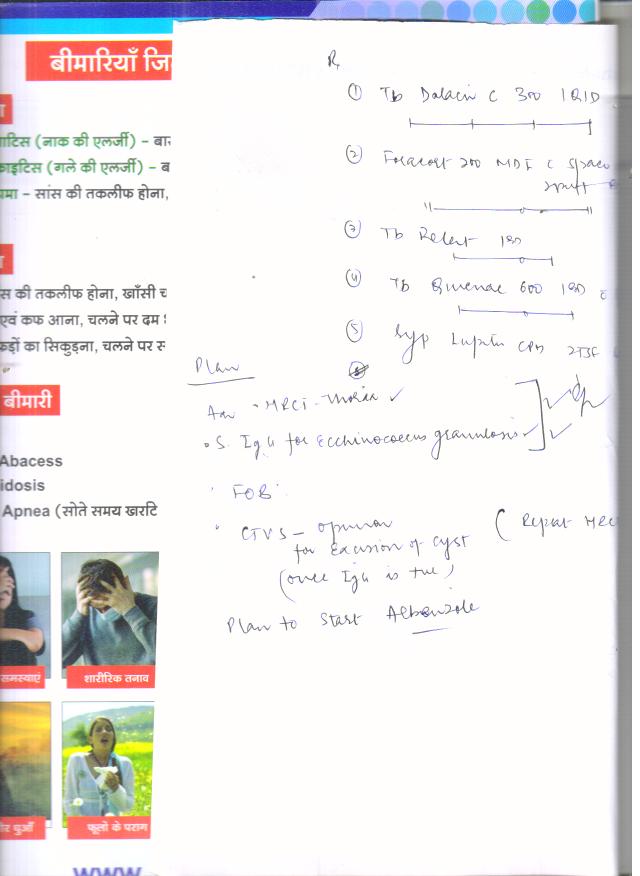 बीमारियाँ
(नाक की एलर्जी) –
(गले की एलर्जी) –
– सांस की तकलीफ होना,
की तकलीफ होना, खाँसी
एवं कफ आना, चलने पर दम
का सिकुड़ना, चलने पर
बीमारी
Abacess
idosis
Apnea (सोते समय खर्राटे
समस्याएं
शारीरिक तनाव
धुआँ
फूलो के पराग
www
Rx
① Tb Dalacin C 300 1 QID
② Foracort 200 MDI c Spacer
2puff
③ Tb Relent 1BD
④ Tb 600 1BD c
⑤ Syp CPD 2TSF
Plan
• HRCT - Thorax ✓
• S. IgG for Ecchinococcus granulosis ✓
• FOB
• CTVS – opinion
for Excision of Cyst
(once IgG is +ve)
(Repeat HRC
Plan to Start Albenzole